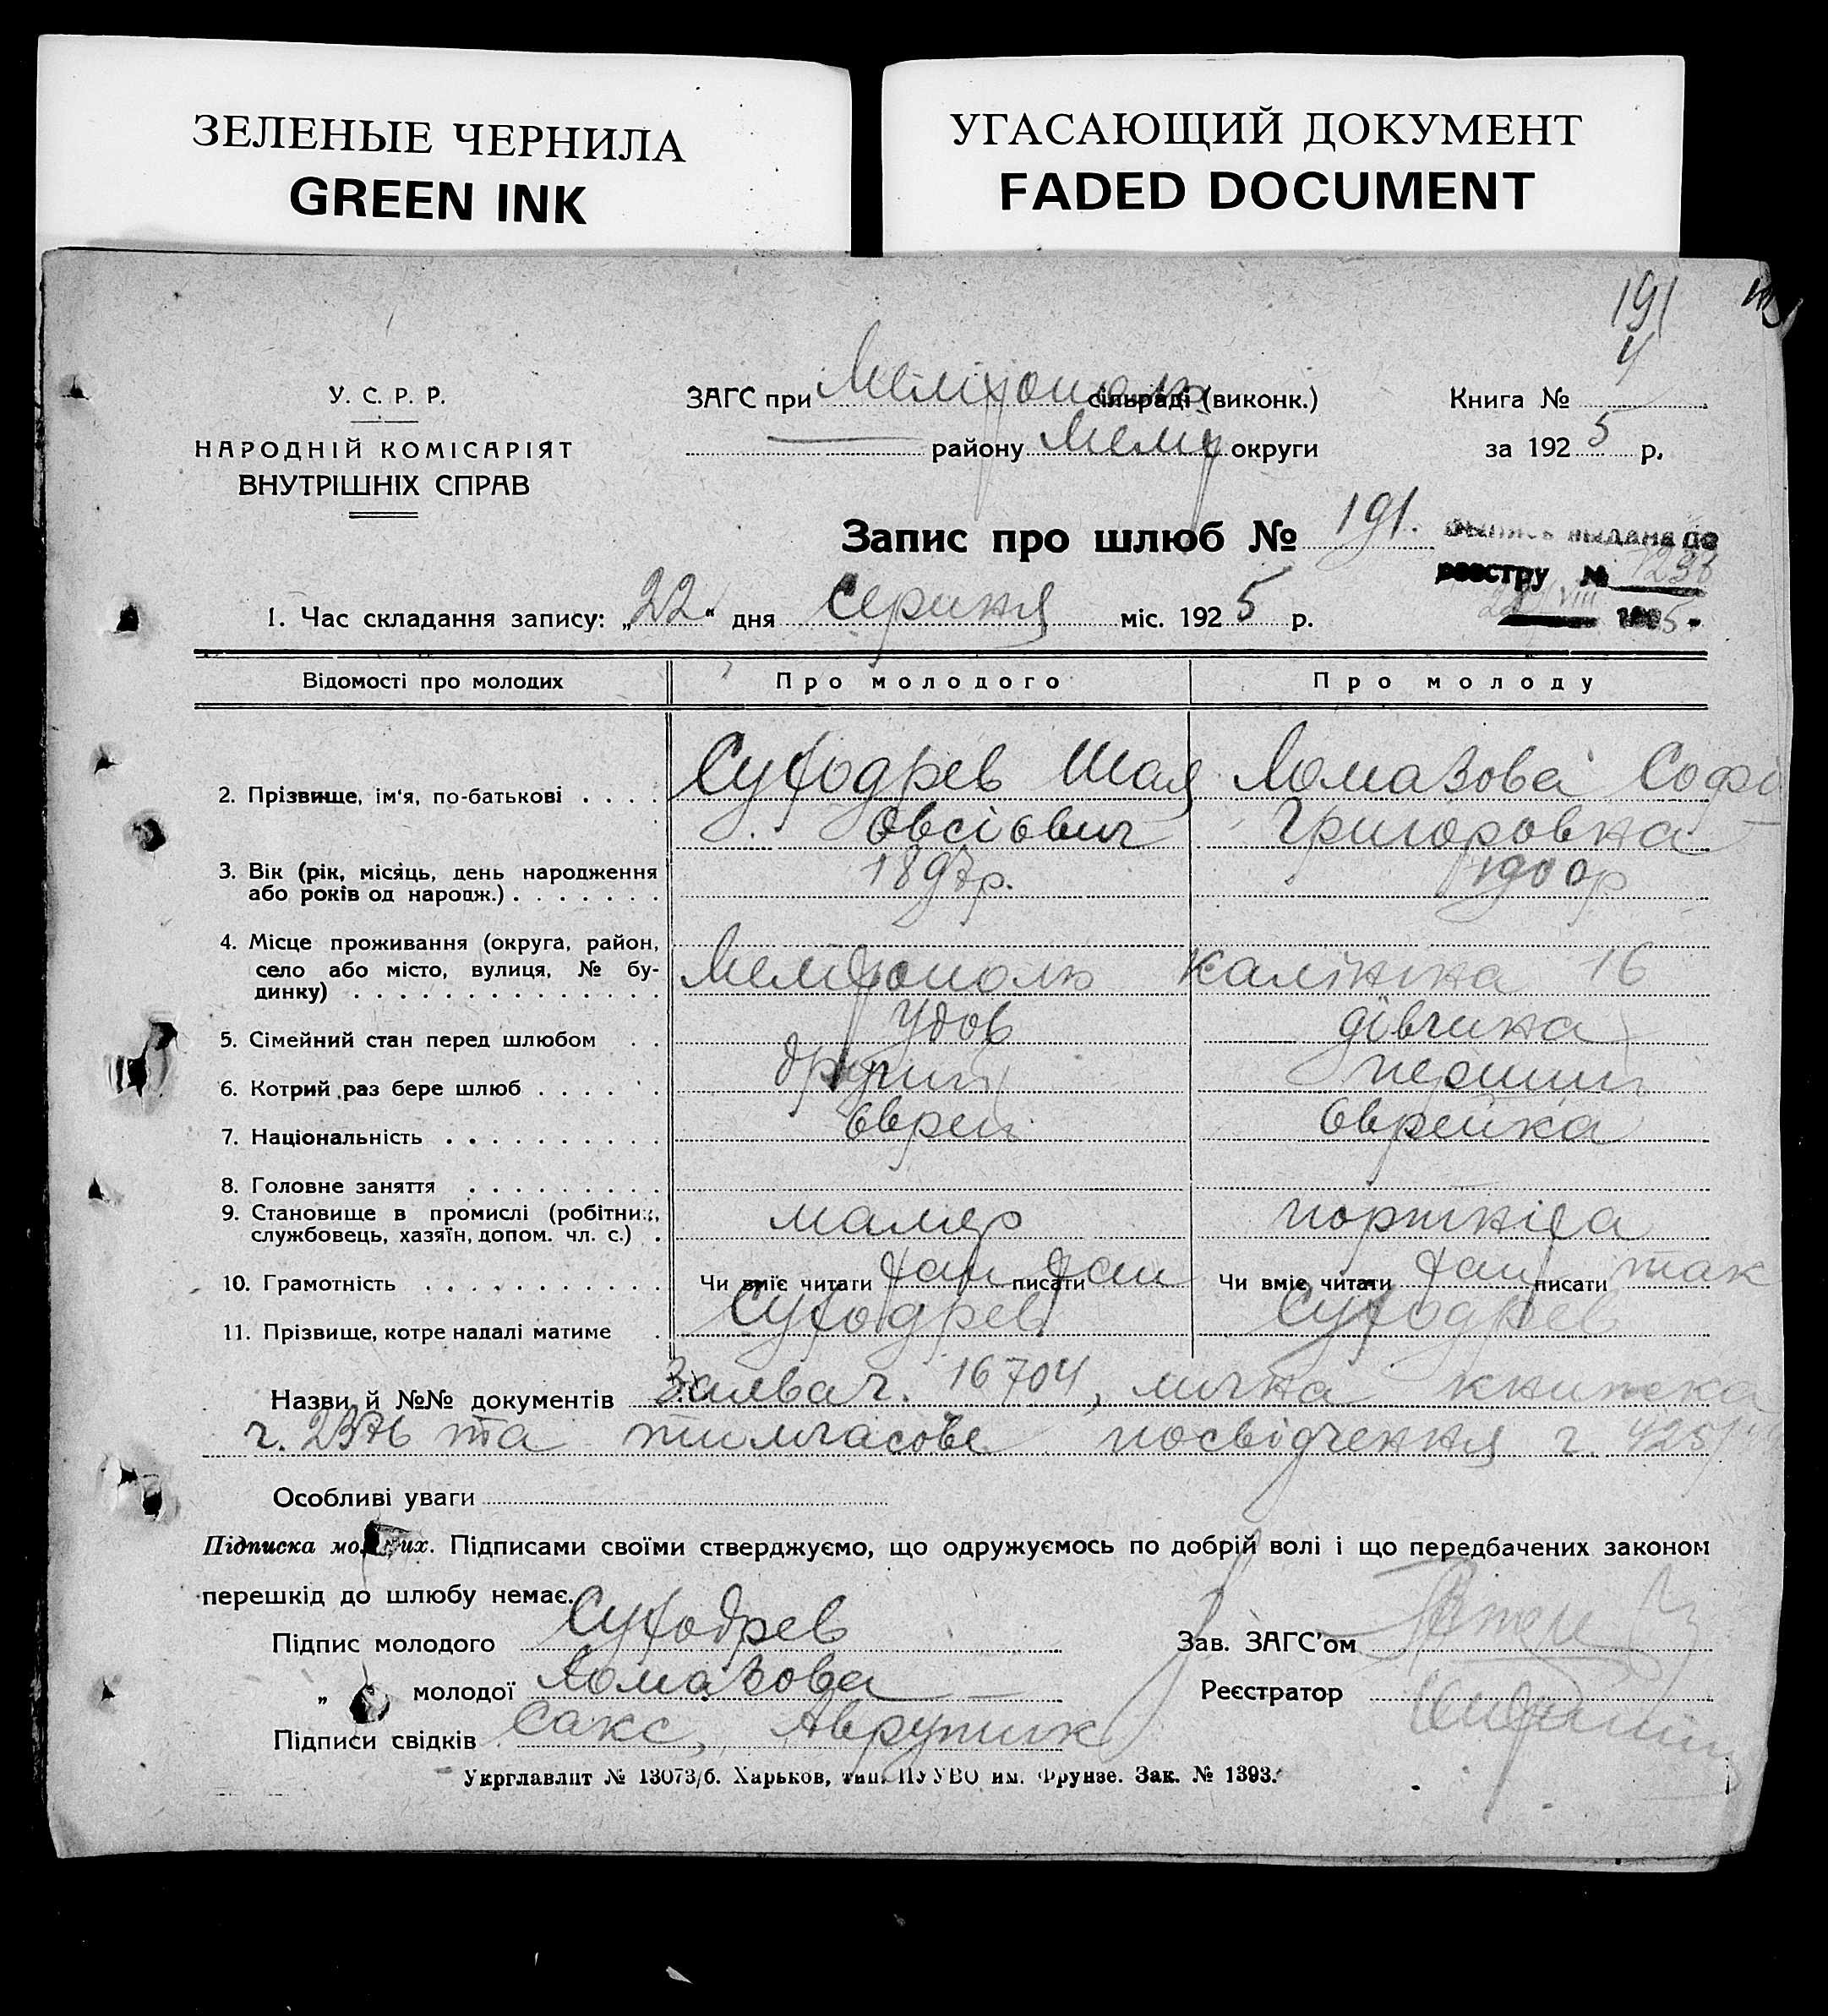 ЗЕЛЕНЫЕ ЧЕРНИЛА
GREEN INK
УГАСАЮЩИЙ ДОКУМЕНТ
FADED DOCUMENT
191
У. С. Р. Р.
НАРОДНІЙ КОМІСАРІЯТ
ВНУТРІШНІХ СПРАВ
ЗАГС при сільраді (виконк.)
району округи
Книга № 4
за 1925 р.
Запис про шлюб № 191.
выдана по
реестру №
VIII 5
1. Час складання запису: „22“ дня Серпня міс. 1925 р.
Відомості про молодих Про молодого Про молоду
2. Прізвище, ім'я, по-батькові . . . . Суходрев Шая Ломазова Софі
Овсієвич Григоровна
3. Вік (рік, місяць, день народження 1897р. 1900р
або років од народж.) . . . . . . .
4. Місце проживання (округа, район,
село або місто, вулиця, № бу- Мелітополь Калініна 16
динку) . . . . . . . . . . . . . .
5. Сімейний стан перед шлюбом . . удов дівчина
6. Котрий раз бере шлюб . . . . . . другий перший
7. Національність . . . . . . . . . . Єврей Єврейка
8. Головне заняття . . . . . . . . .
9. Становище в промислі (робітник, маляр портніха
службовець, хазяїн, допом. чл. с.) .
10. Грамотність . . . . . . . . . . . Чи вміє читати так писати так Чи вміє читати так писати так
11. Прізвище, котре надалі матиме . Суходрев Суходрев
Назви й №№ документів Заява ч. 16704, лична книжка
ч. та тимчасове посвідчення ч.
Особливі уваги
Підписка молодих. Підписами своїми стверджуємо, що одружуємось по добрій волі і що передбачених законом
перешкід до шлюбу немає.
Підпис молодого Суходрев
Зав. ЗАГС'ом
„ молодої Ломазова
Реєстратор
Підписи свідків Сакс, Аврутик
Укрглавлит № 13073/б. Харьков, тип. ПУУВО им. Фрунзе. Зак. № 1393.